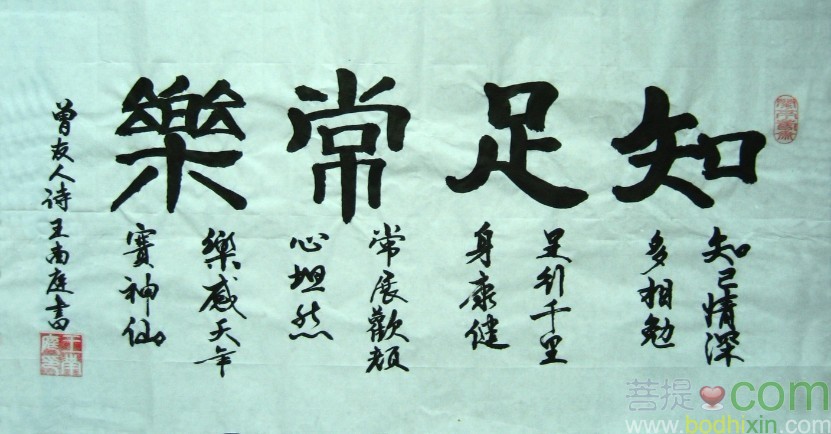 知足常樂
知已情深
多相勉
足行千里
身康健
常展歡顏
心坦然
樂感天年
賽神仙
曾友人诗王南庭書
王南庭書
菩提 com
www.bodhixin.com